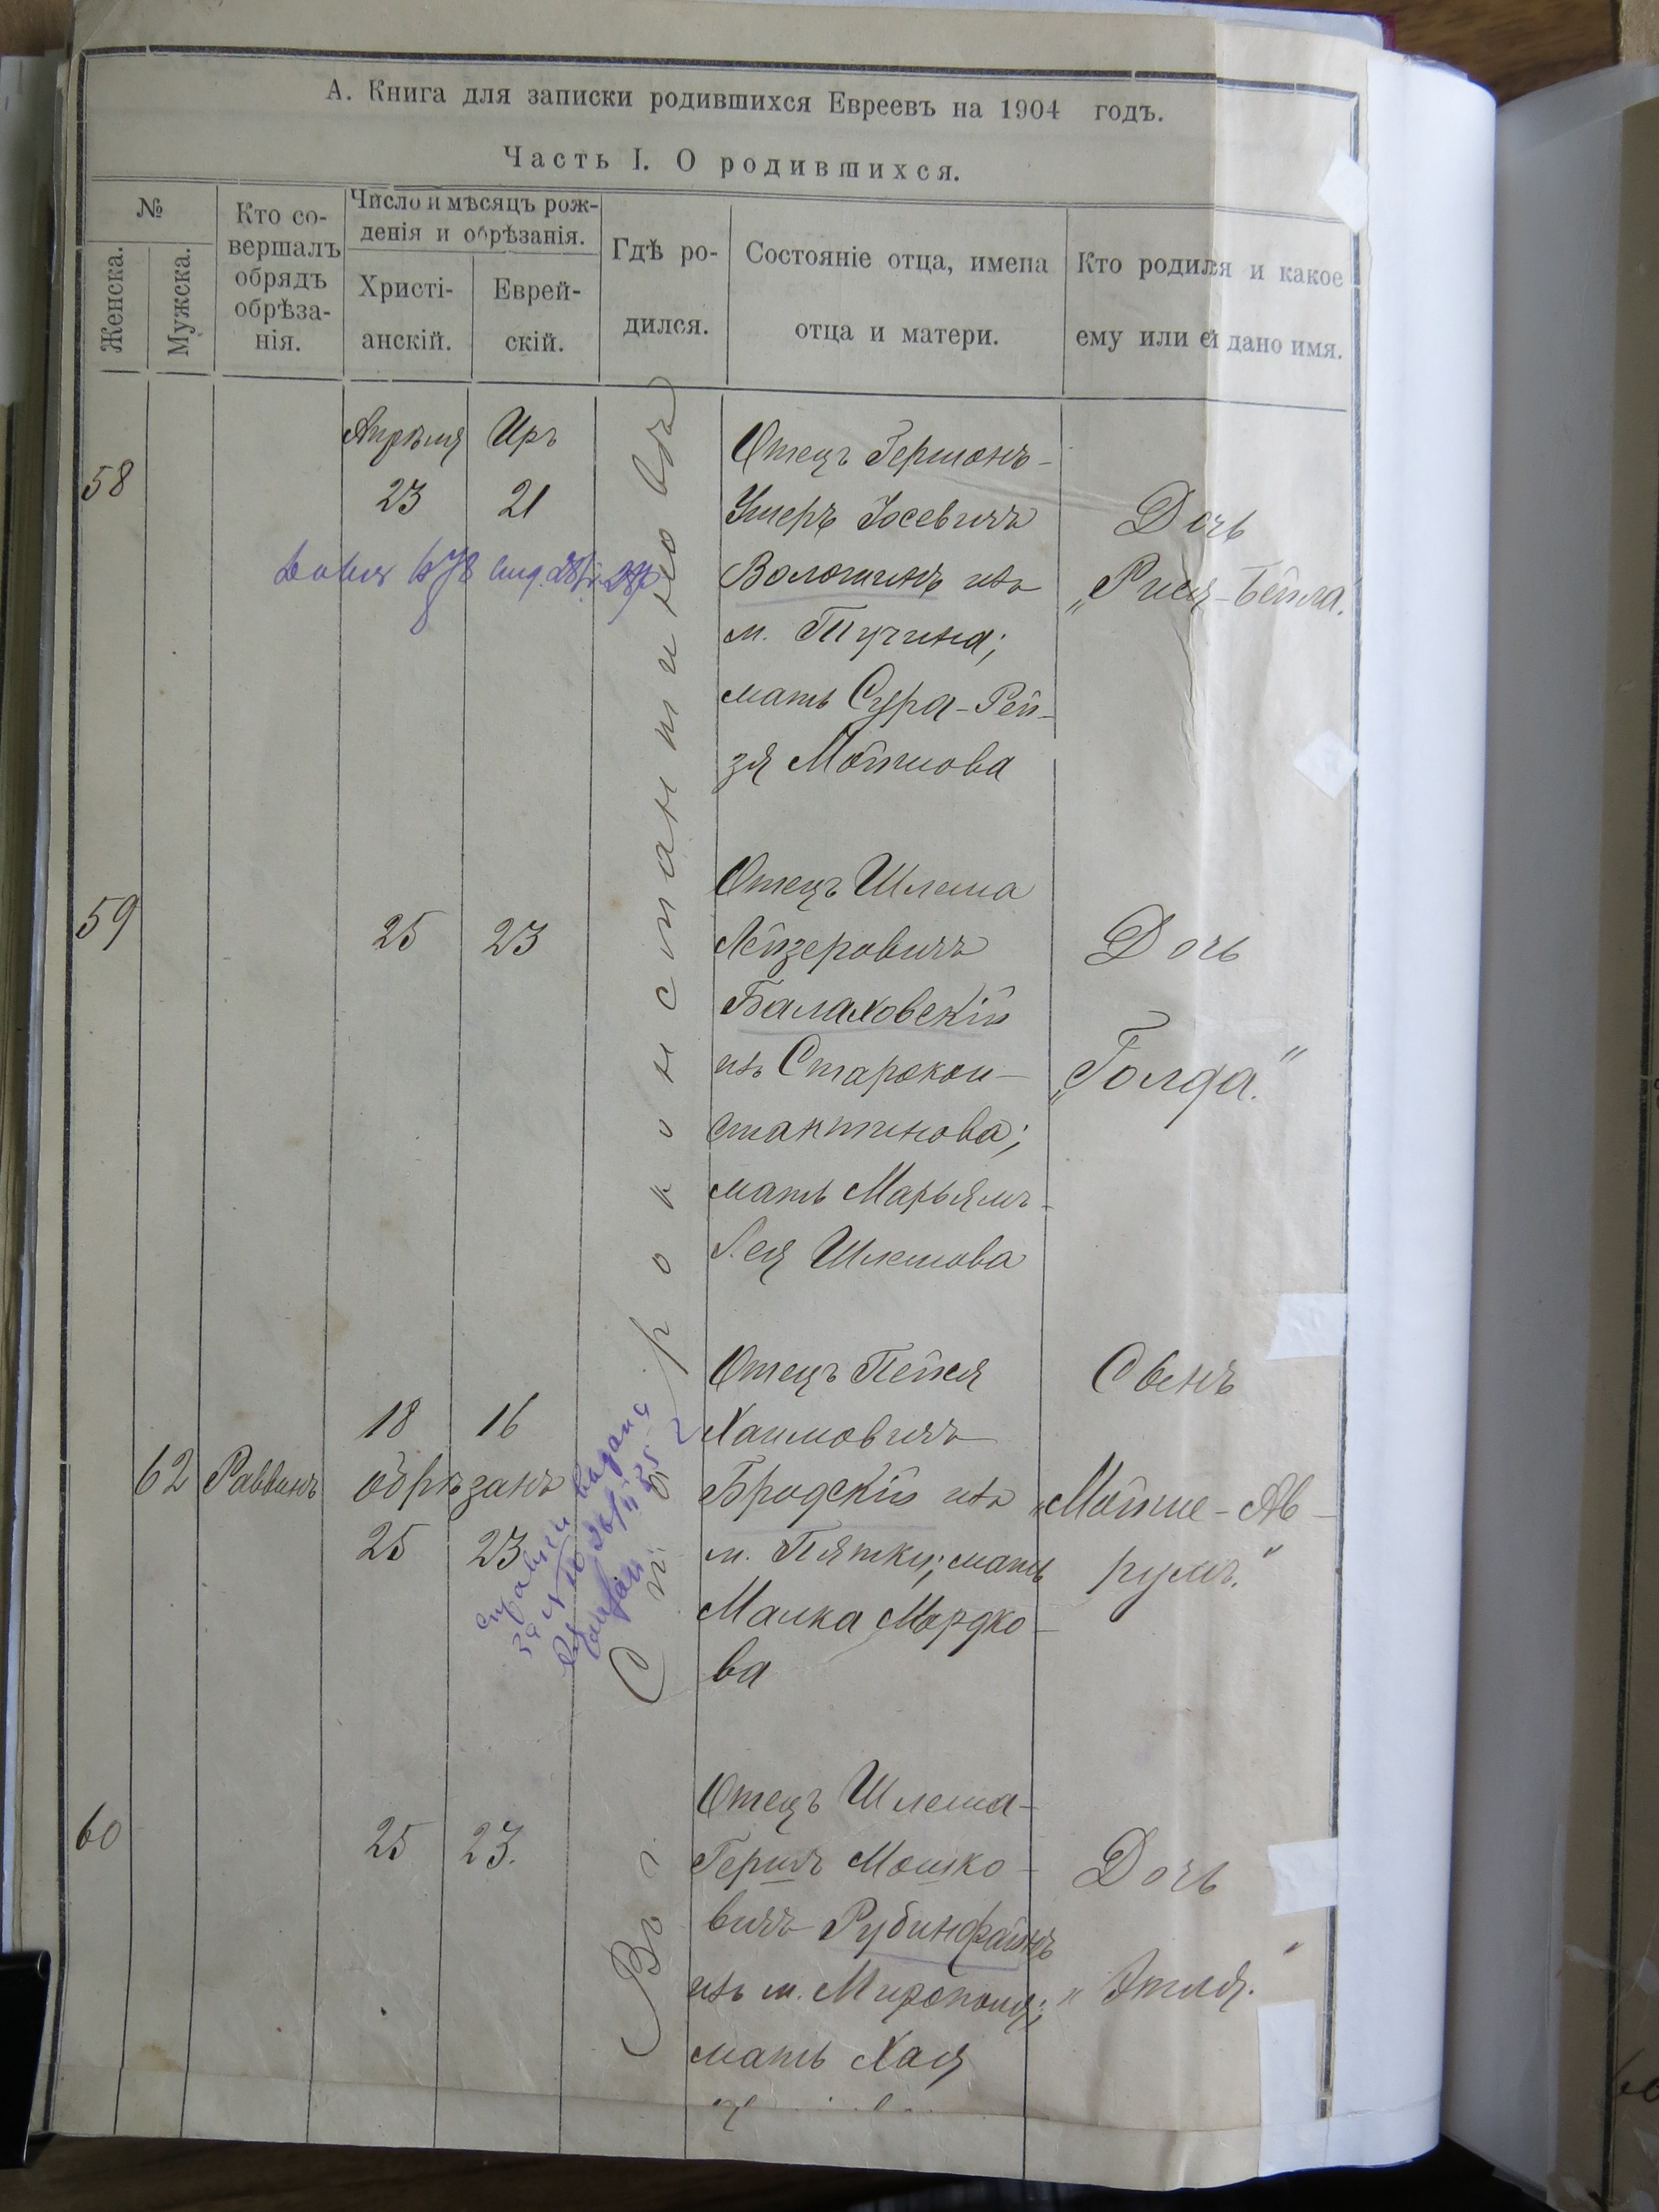 А. Книга для записки родившихся Евреевъ на 1904 годъ.
Часть I. О родившихся.
№
Женска.
Мужска.
Кто со-
вершалъ
обрядъ
обрѣза-
нія.
Число и мѣсяцъ рож-
денія и обрѣзанія.
Христі-
анскій.
Еврей-
скій.
Гдѣ ро-
дился.
Состояніе отца, имена
отца и матери.
Кто родился и какое
ему или ей дано имя.
Въ г. Староконстантиновѣ
58
Апрѣля Иръ
23 21
Отецъ Гершонъ-
Ушеръ Іосевичъ
Волошинъ изъ
м. Тучина;
мать Сура-Рей-
зя Мотиова
Дочь
„Рися-Бейла."
59
25 23
Отецъ Шлема
Лейзеровичъ
Балаховскій
изъ Старокон-
стантинова;
мать Марьямъ-
Лея Шлемова
Дочь
„Голда."
62 Раввинъ
18 16
обрѣзанъ
25 23
Отецъ Пейся
Хаимовичъ
Бродскій изъ
м. Пятки; мать
Малка Мордко-
ва
Сынъ
„Мотие-Ав-
румъ."
60
25 23.
Отецъ Шлема-
Гершъ Мошко-
вичъ Рубинфайнъ
изъ м. Мирополя;
мать Хая
Дочь
„Этля."